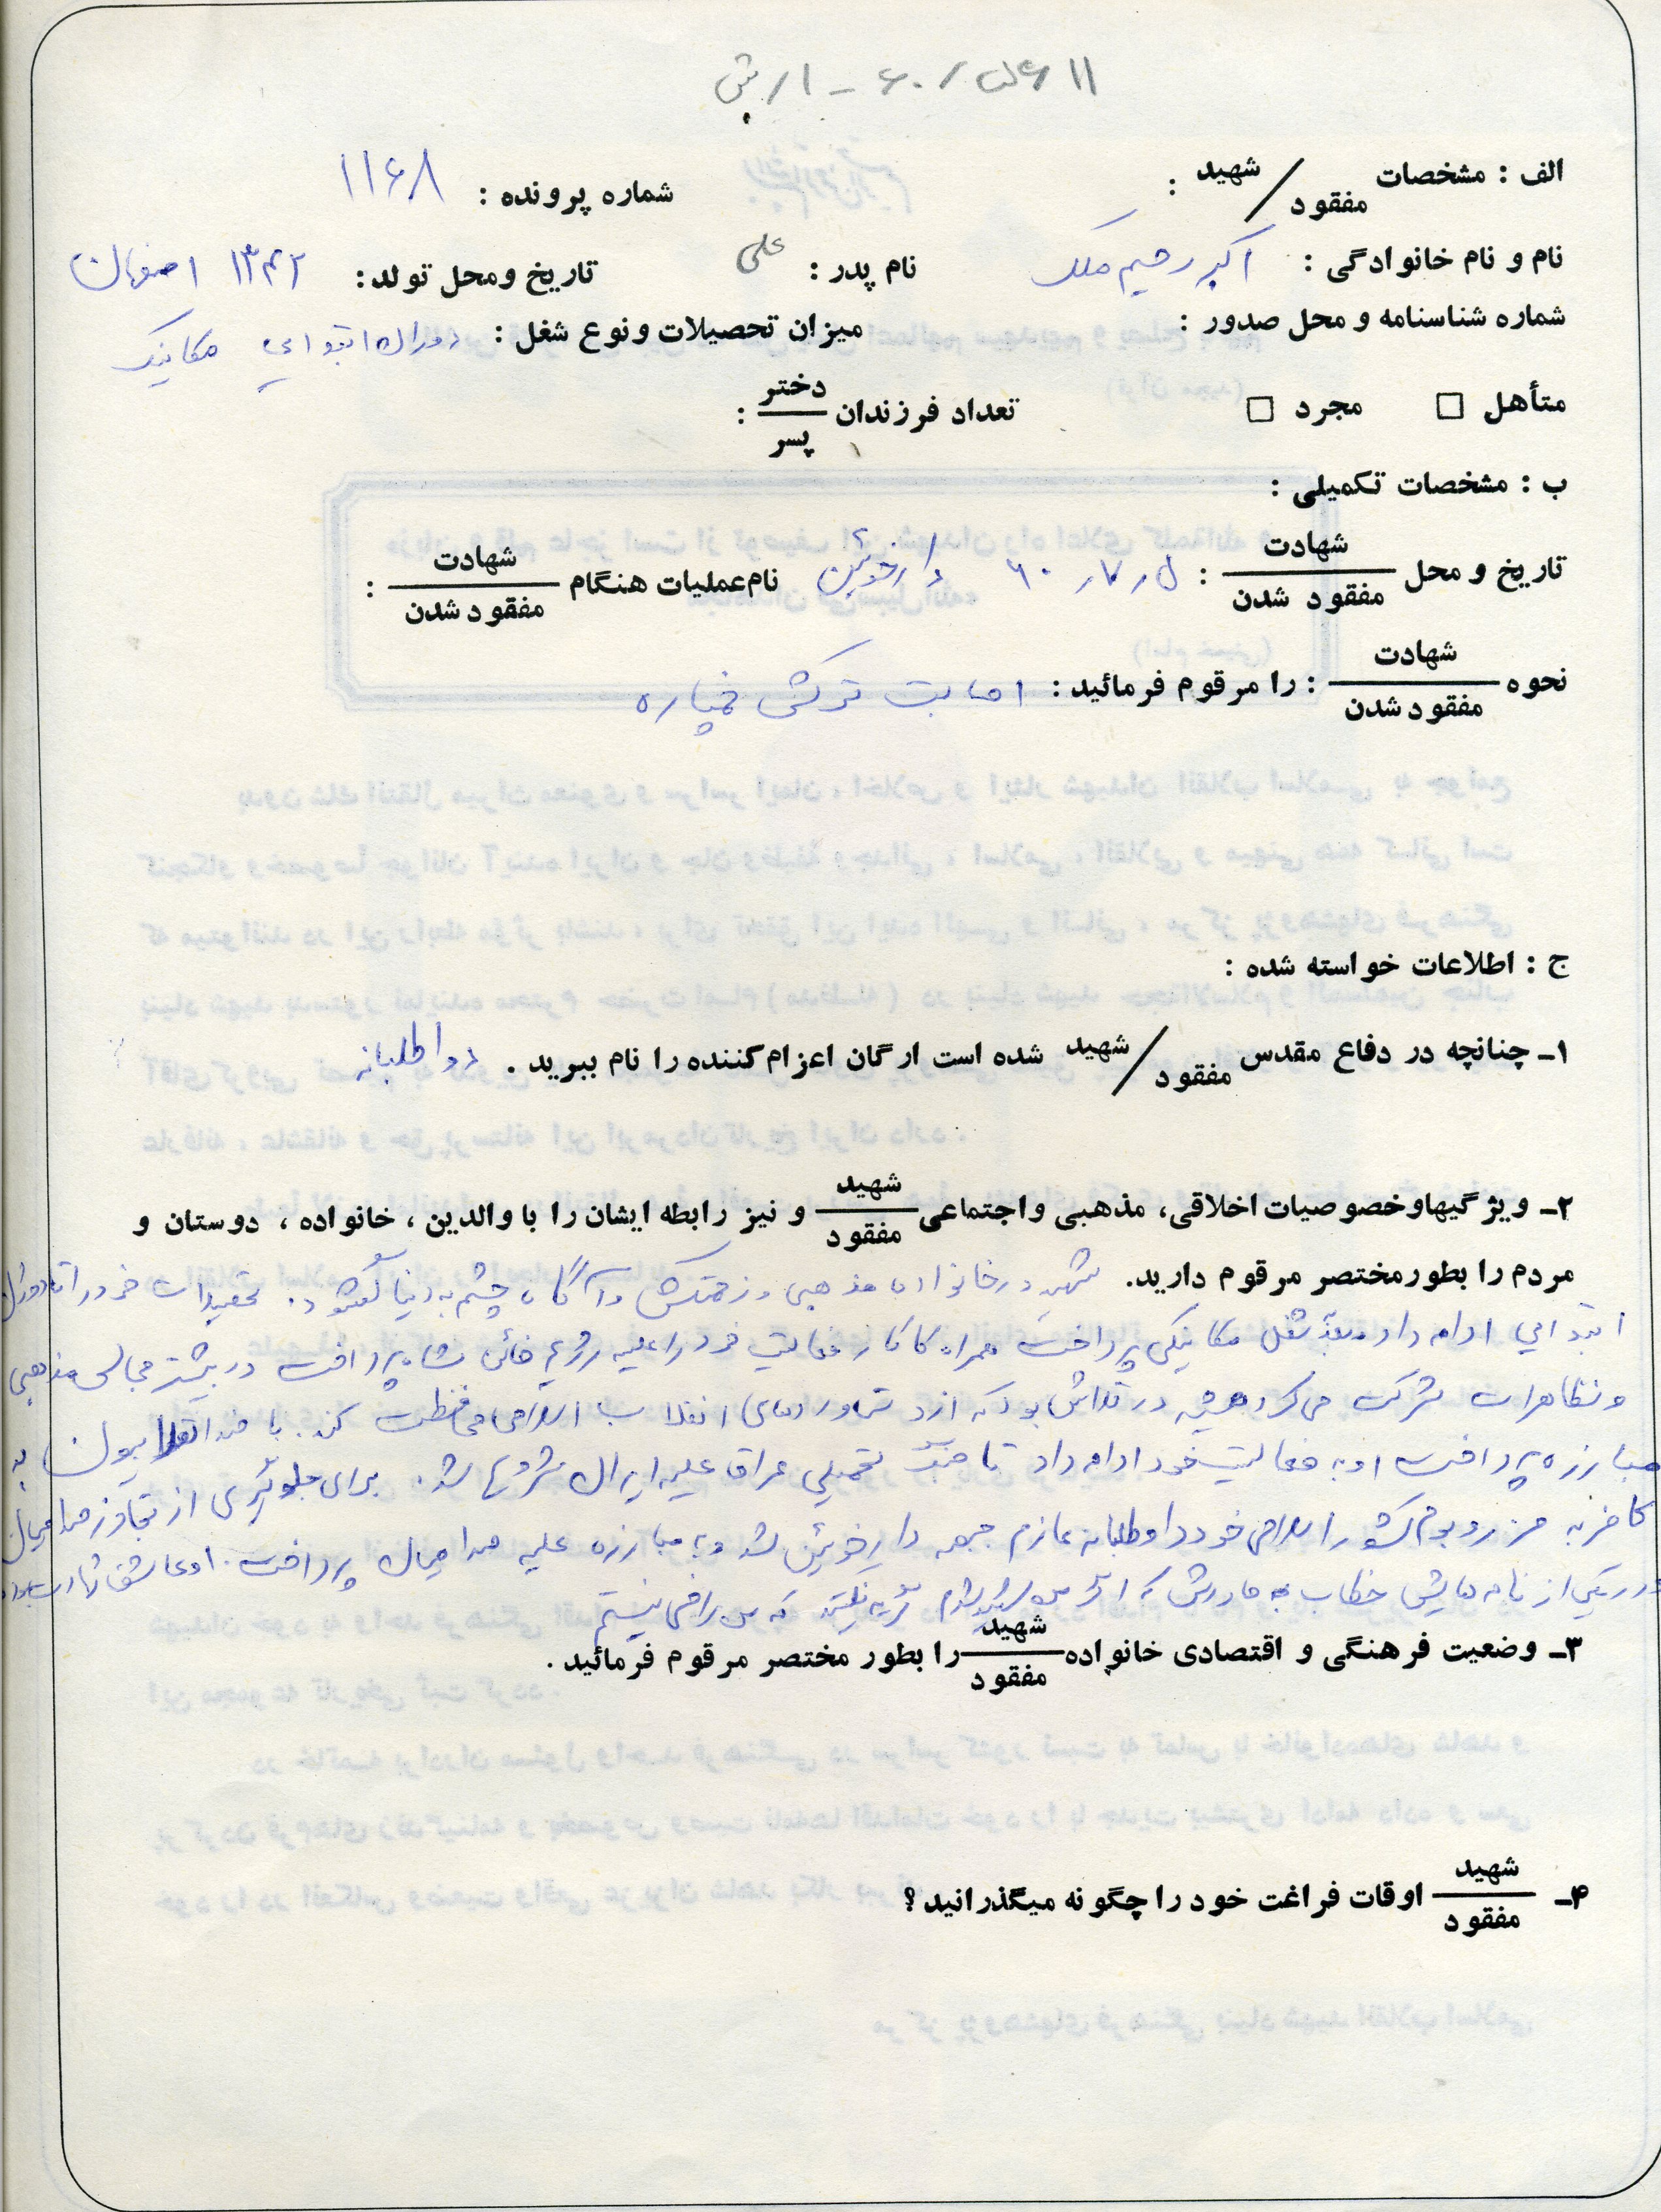 الف : مشخصات شهید / مفقود :
شماره پرونده : ۱۱۶۸
نام و نام خانوادگی : اکبر رحیم ملک نام پدر : علی تاریخ و محل تولد : ۱۳۴۲ اصفهان
شماره شناسنامه و محل صدور : میزان تحصیلات و نوع شغل : دوران ابتدایی مکانیک
متأهل □ مجرد □ تعداد فرزندان دختر / پسر :
ب : مشخصات تکمیلی :
تاریخ و محل شهادت / مفقود شدن : ۶۰ دارخوئین نام عملیات هنگام شهادت / مفقود شدن :
نحوه شهادت / مفقود شدن : را مرقوم فرمائید : اصابت ترکش خمپاره
ج : اطلاعات خواسته شده :
۱ـ چنانچه در دفاع مقدس شهید / مفقود شده است ارگان اعزام کننده را نام ببرید . دواطلبانه
۲ـ ویژگیها و خصوصیات اخلاقی، مذهبی و اجتماعی شهید / مفقود و نیز رابطه ایشان را با والدین ، خانواده ، دوستان و
مردم را بطور مختصر مرقوم دارید. شهید در خانواده مذهبی و زحمتکش و آگاه چشم به دنیا گشود. تحصیلات خود را تا دوران
ابتدایی ادامه داد و بعد شغل مکانیکی پرداخت همراه کار فعالیت خود را علیه رژیم خائن شاه پرداخت در بیشتر مجالس مذهبی
و تظاهرات شرکت می‌کرد همیشه در تلاش بود که از دستاوردهای انقلاب اسلامی محافظت کند. با ضد انقلابیون به
مبارزه پرداخت او به فعالیت خود ادامه داد تا جنگ تحمیلی عراق علیه ایران شروع شد. برای جلوگیری از تجاوز صدامیان
کافر به مرز و بوم کشور اسلامی خود داوطلبانه عازم جبهه دارخوئین شد و به مبارزه علیه صدامیان پرداخت. او عاشق شهادت بود
در یکی از نامه هایش خطاب به مادرش که اگر من شهید شدم گریه نکنید که من راضی نیستم
۳ـ وضعیت فرهنگی و اقتصادی خانواده شهید / مفقود را بطور مختصر مرقوم فرمائید .
۴ـ شهید / مفقود اوقات فراغت خود را چگونه میگذرانید ؟